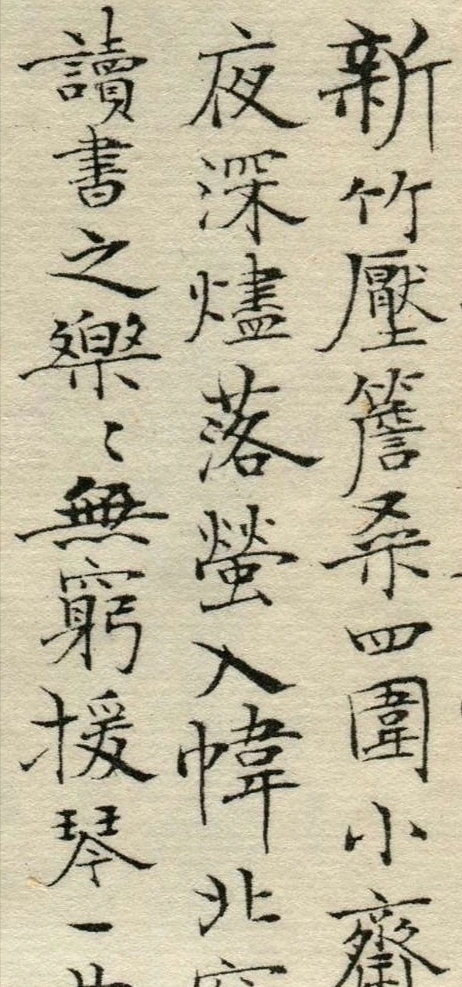 新竹壓簷桑四圍小齋
夜深燼落螢入幃北窗
讀書之樂〻無窮援琴一